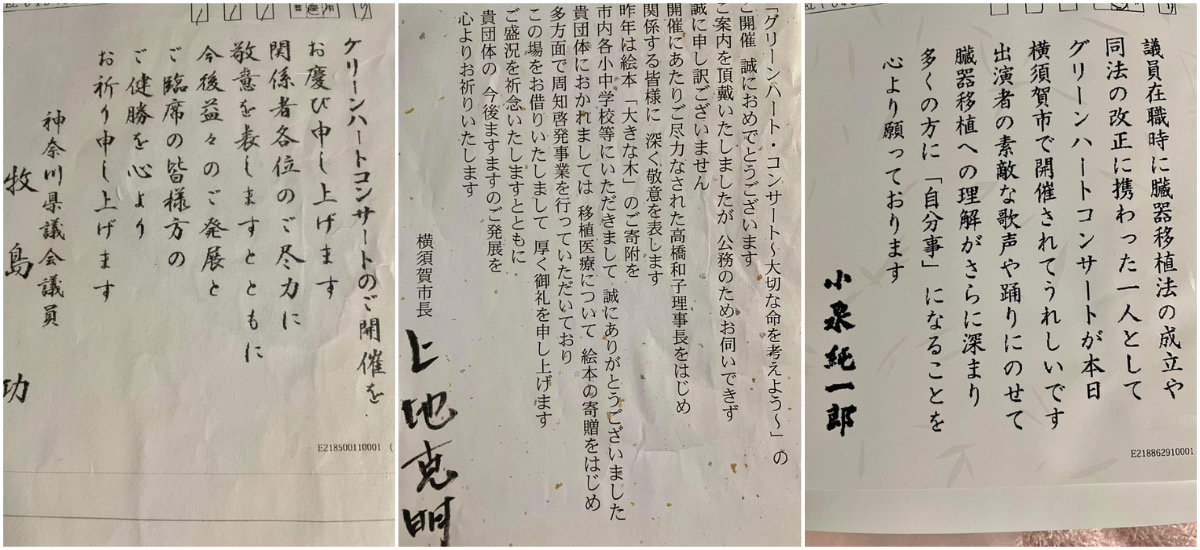 グリーンハートコンサートのご開催を
お慶び申し上げます
関係者各位のご尽力に
敬意を表しますとともに
今後益々のご発展と
ご臨席の皆様方の
ご健勝を心より
お祈り申し上げます
神奈川県議会議員
牧島 功
E218500110001
「グリーンハート・コンサート〜大切な命を考えよう〜」の
ご開催 誠におめでとうございます
ご案内を頂戴いたしましたが 公務のためお伺いできず
誠に申し訳ございません
開催にあたりご尽力なされた高橋和子理事長をはじめ
関係する皆様に 深く敬意を表します
昨年は絵本「大きな木」のご寄附を
市内各小中学校等にいただきまして 誠にありがとうございました
貴団体におかれましては 移植医療について 絵本の寄贈をはじめ
多方面で周知啓発事業を行っていただいており
この場をお借りいたしまして 厚く御礼を申し上げます
ご盛況を祈念いたしますとともに
貴団体の 今後ますますのご発展を
心よりお祈りいたします
横須賀市長
上地克明
議員在職時に臓器移植法の成立や
同法の改正に携わった一人として
グリーンハートコンサートが本日
横須賀市で開催されてうれしいです
出演者の素敵な歌声や踊りにのせて
臓器移植への理解がさらに深まり
多くの方に「自分事」になることを
心より願っております
小泉純一郎
E218862910001